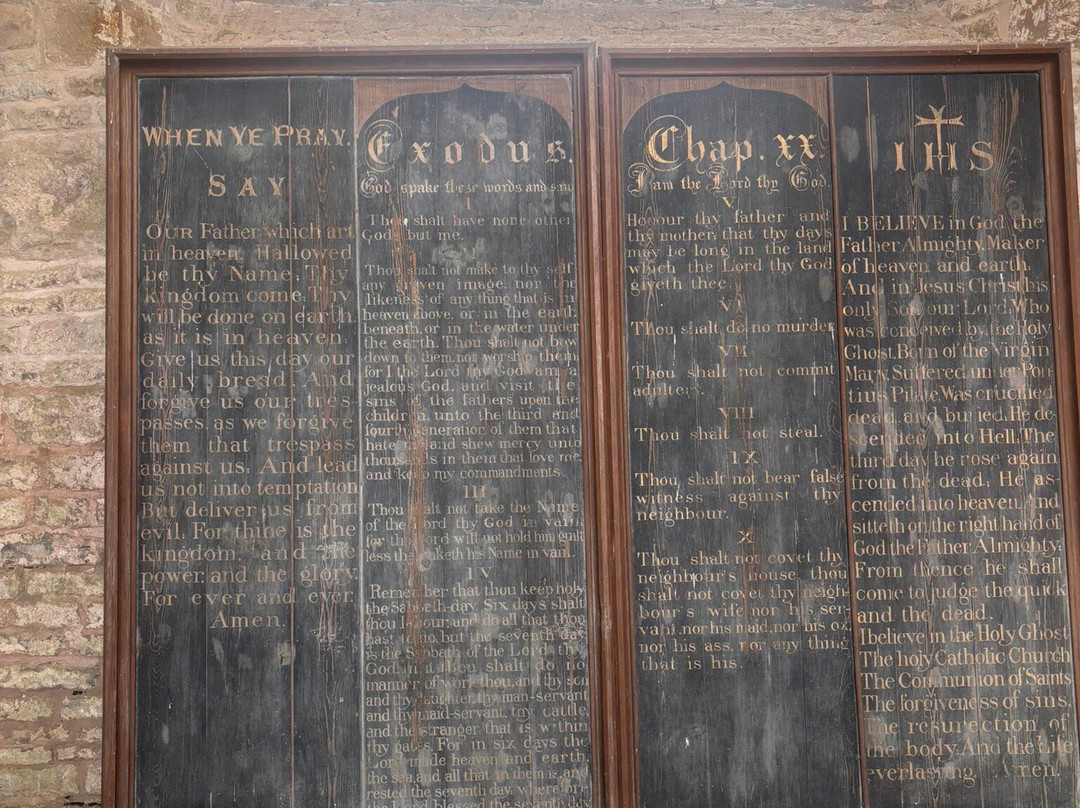 WHEN YE PRAY.
SAY
OUR Father which art
in heaven, Hallowed
be thy Name, Thy
kingdom come, Thy
will be done on earth
as it is in heaven.
Give us this day our
daily bread. And
forgive us our tres-
passes, as we forgive
them that trespass
against us, And lead
us not into temptation
But deliver us from
evil, For thine is the
kingdom, and the
power, and the glory,
For ever and ever.
Amen.
Exodus.
God spake these words and said
I
Thou shalt have none other
Gods but me.
Thou shalt not make to thy self
any graven image, nor the
likeness of any thing that is in
heaven above, or in the earth
beneath, or in the water under
the earth. Thou shalt not bow
down to them, nor worship them,
for I the Lord thy God am a
jealous God, and visit the
sins of the fathers upon the
children, unto the third and
fourth generation of them that
hate me, and shew mercy unto
thousands in them that love me,
and keep my commandments.
III
Thou shalt not take the Name
of the Lord thy God in vain,
for the Lord will not hold him guilt
less that taketh his Name in vain.
IV
Remember that thou keep holy
the Sabbath-day. Six days shalt
thou labour, and do all that thou
hast to do, but the seventh day
is the Sabbath of the Lord thy
God. In it thou shalt do no
manner of work, thou, and thy son
and thy daughter, thy man-servant
and thy maid-servant, thy cattle,
and the stranger that is within
thy gates. For in six days the
Lord made heaven and earth,
the sea, and all that in them is, and
rested the seventh day, wherefore
the Lord blessed the seventh day
Chap. XX.
I am the Lord thy God.
V
Honour thy father and
thy mother, that thy days
may be long in the land
which the Lord thy God
giveth thee.
VI
Thou shalt do no murder
VII
Thou shalt not commit
adultery.
VIII
Thou shalt not steal.
IX
Thou shalt not bear false
witness against thy
neighbour.
X
Thou shalt not covet thy
neighbour's house, thou
shalt not covet thy neigh-
bour's wife, nor his ser-
vant, nor his maid, nor his ox
nor his ass, nor any thing
that is his.
IHS
I BELIEVE in God the
Father Almighty, Maker
of heaven and earth.
And in Jesus Christ his
only son our Lord, Who
was conceived by the Holy
Ghost, Born of the Virgin
Mary, Suffered under Pon-
tius Pilate, Was crucified
dead, and buried, He de-
scended into Hell, The
third day he rose again
from the dead, He as-
cended into heaven, And
sitteth on the right hand of
God the Father Almighty;
From thence he shall
come to judge the quick
and the dead.
I believe in the Holy Ghost
The holy Catholic Church
The Communion of Saints
The forgiveness of sins,
The resurection of
the body, And the life
everlasting. Amen.